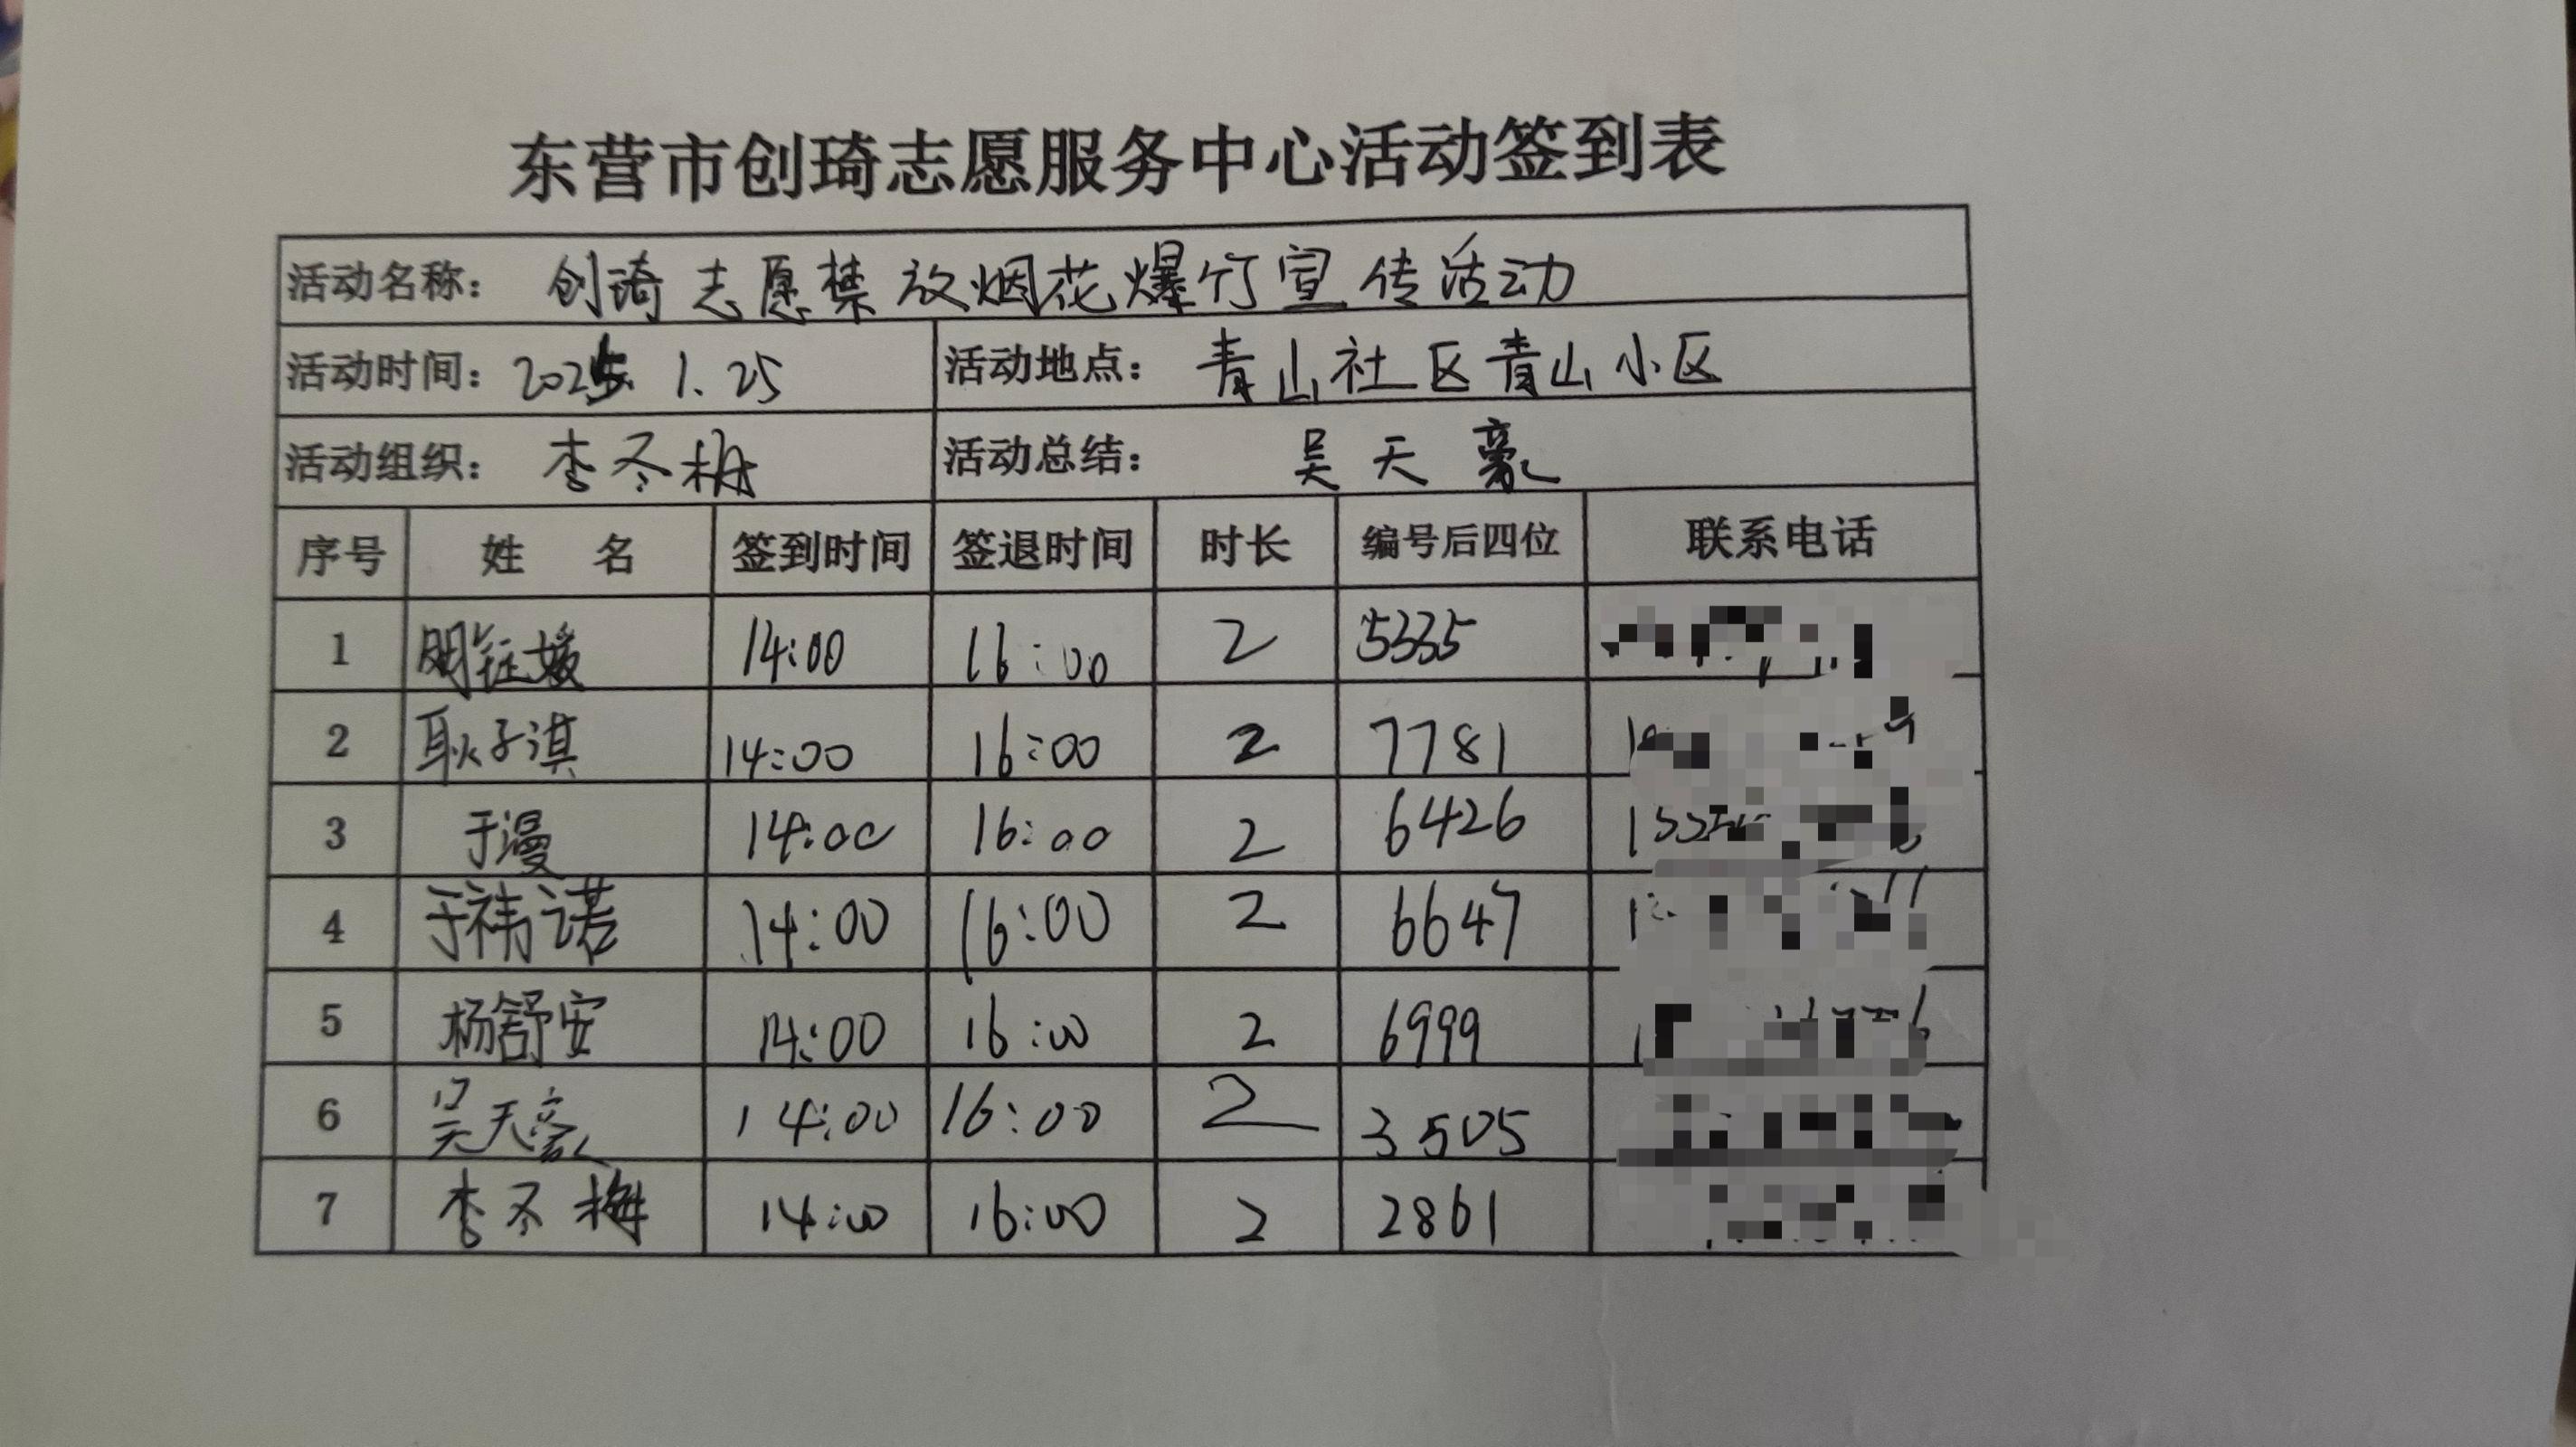 东营市创琦志愿服务中心活动签到表
活动名称： 创琦志愿禁放烟花爆竹宣传活动
活动时间： 2025. 1. 25 活动地点： 青山社区青山小区
活动组织： 李冬梅 活动总结： 吴天豪
序号 姓 名 签到时间 签退时间 时长 编号后四位 联系电话
1 明钰媛 14:00 16:00 2 5335
2 耿子淇 14:00 16:00 2 7781
3 于漫 14:00 16:00 2 6426
4 于祎诺 14:00 16:00 2 6647
5 杨舒安 14:00 16:00 2 6999
6 吴天豪 14:00 16:00 2 3505
7 李冬梅 14:00 16:00 2 2861